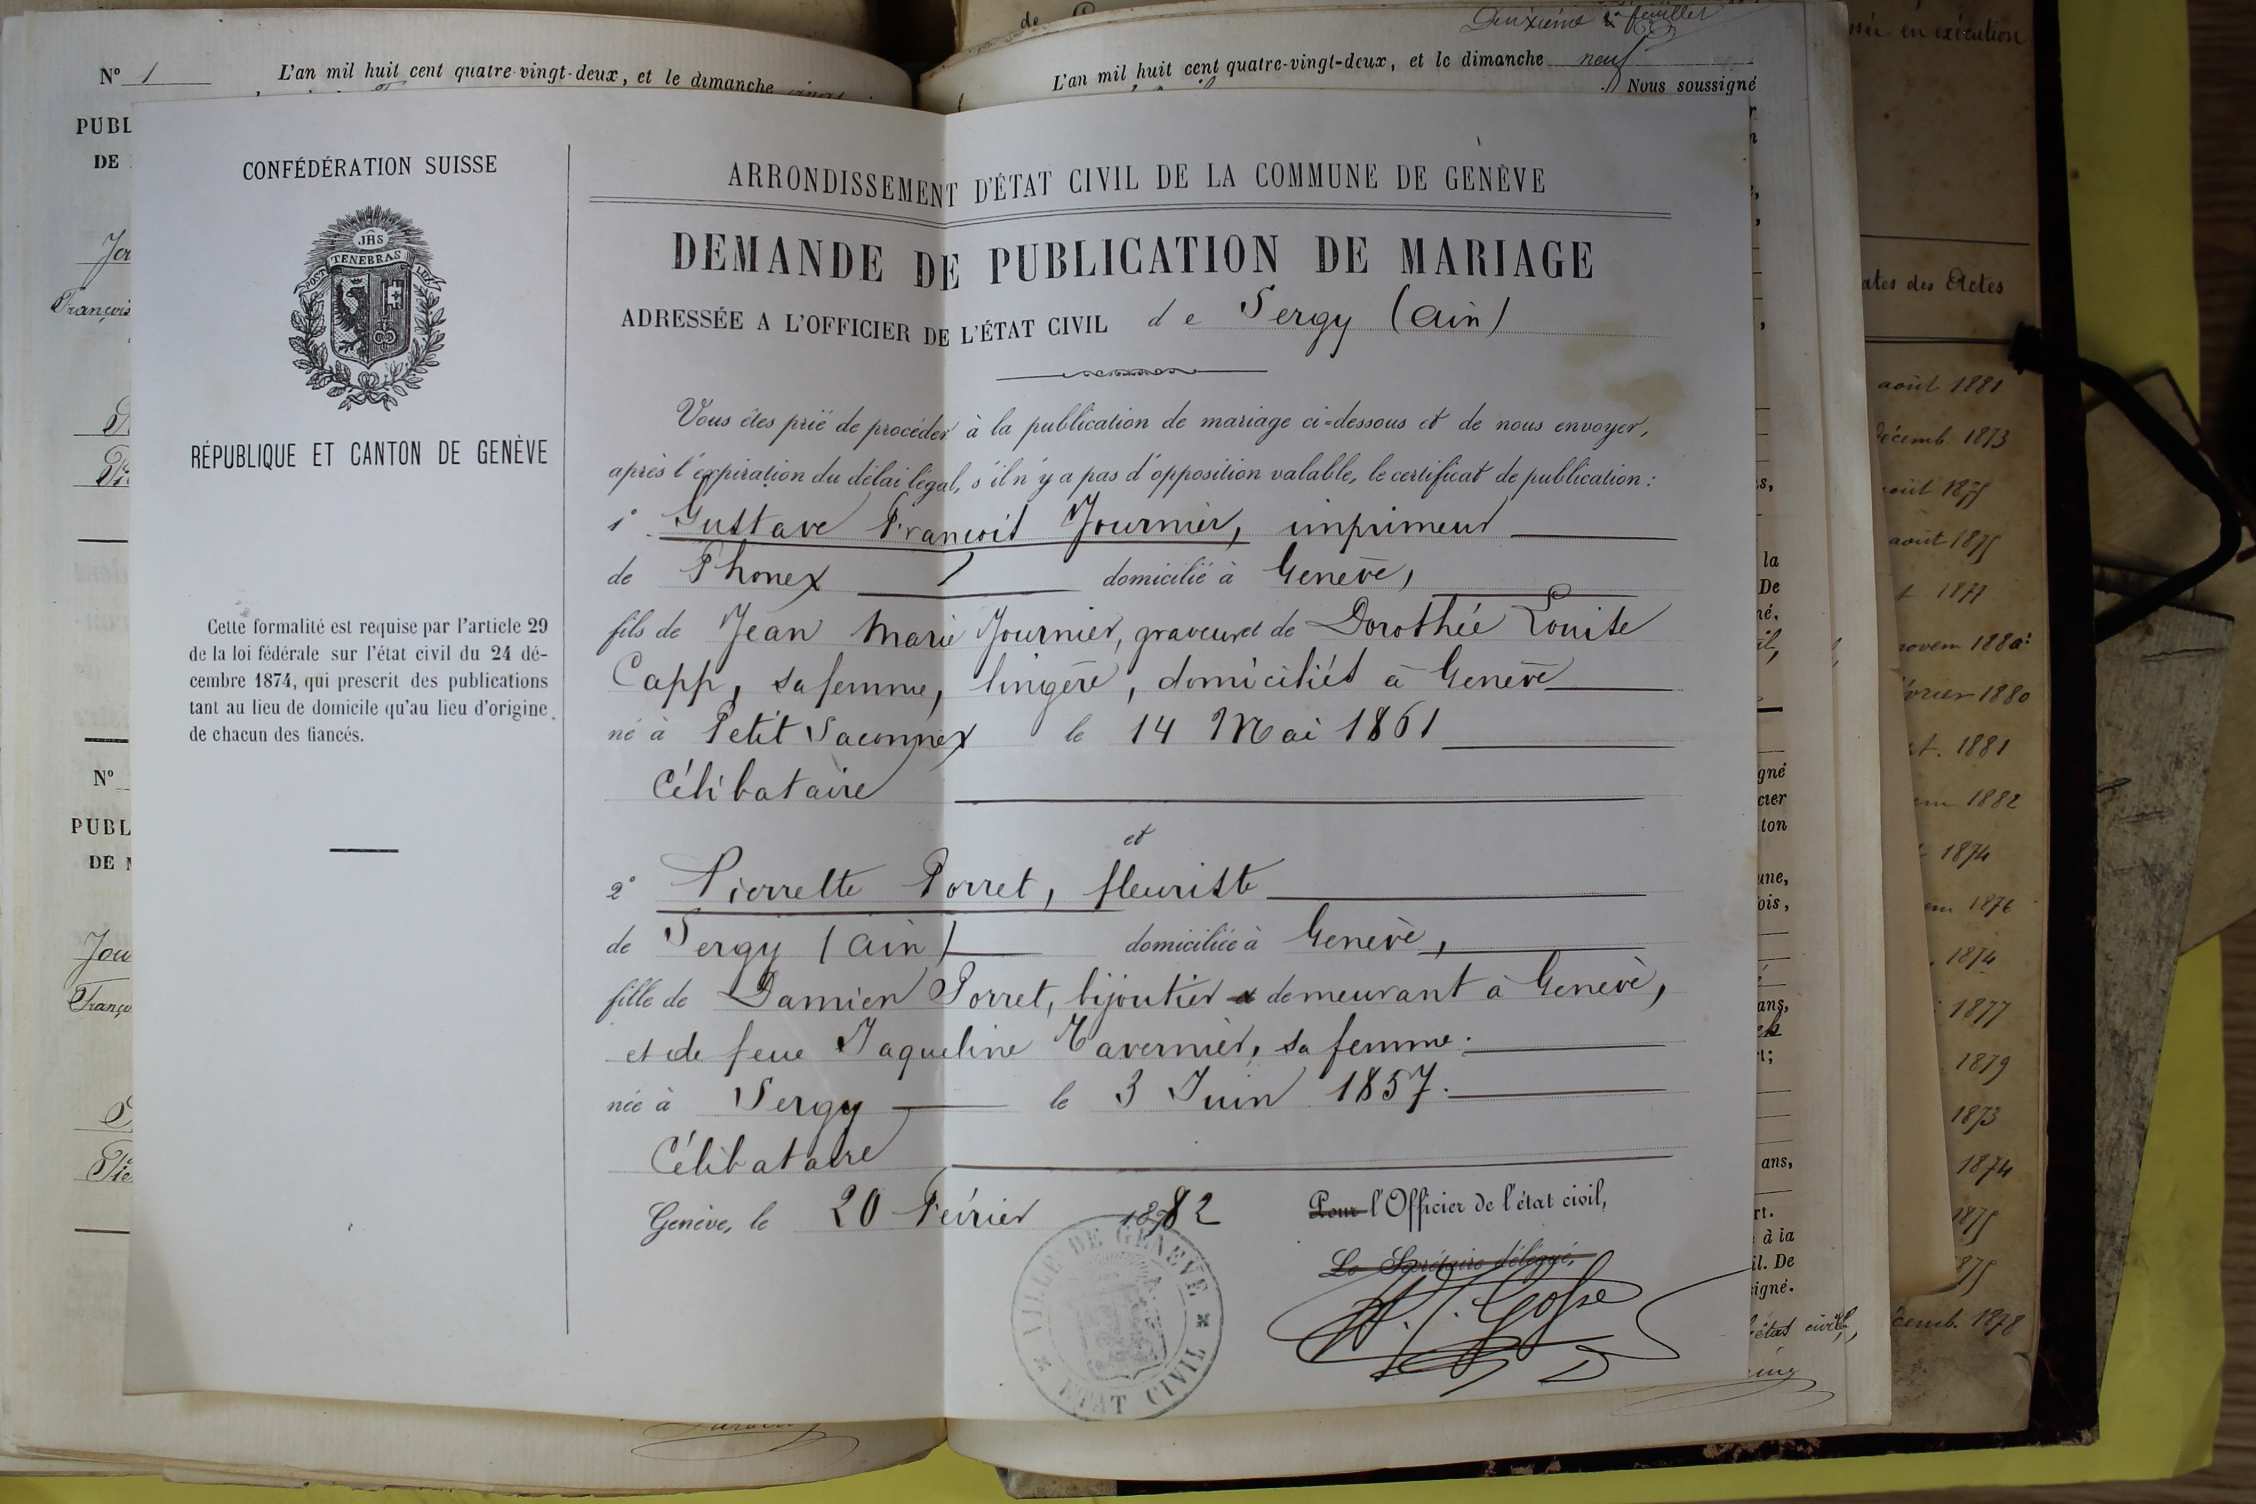 Deuxième feuillet
N° 1
L'an mil huit cent quatre-vingt-deux, et le dimanche
L'an mil huit cent quatre-vingt-deux, et le dimanche neuf
Nous soussigné
PUBL
DE
CONFÉDÉRATION SUISSE
JHS
POST TENEBRAS LUX
RÉPUBLIQUE ET CANTON DE GENÈVE
Cette formalité est requise par l'article 29
de la loi fédérale sur l'état civil du 24 dé-
cembre 1874, qui prescrit des publications
tant au lieu de domicile qu'au lieu d'origine
de chacun des fiancés.
ARRONDISSEMENT D'ÉTAT CIVIL DE LA COMMUNE DE GENÈVE
DEMANDE DE PUBLICATION DE MARIAGE
ADRESSÉE A L'OFFICIER DE L'ÉTAT CIVIL de Sergy (Ain)
Vous êtes prié de procéder à la publication de mariage ci-dessous et de nous envoyer,
après l'expiration du délai légal, s'il n'y a pas d'opposition valable, le certificat de publication :
1° Gustave François Journier, imprimeur
de Thonex domicilié à Genève,
fils de Jean Marie Journier, graveur et de Dorothée Louise
Capp, sa femme, lingère, domiciliés à Genève
né à Petit Saconnex le 14 Mai 1861
Célibataire
et
2° Pierrette Porret, fleuriste
de Sergy (Ain) domiciliée à Genève,
fille de Damien Porret, bijoutier demeurant à Genève,
et de feue Jaqueline Tavernier, sa femme.
née à Sergy le 3 Juin 1857.
Célibataire
Genève, le 20 Février 1882
Pour l'Officier de l'état civil,
Le Secrétaire délégué,
VILLE DE GENÈVE
ÉTAT CIVIL
N°
PUBL
DE
ssée en exécution
ates des Actes
août 1881
décemb. 1873
août 1875
août 1875
1877
novem 1880
février 1880
1881
1882
1874
1876
1874
1877
1879
1873
1874
1875
1875
décemb. 1878
la
De
né.
gné
cier
ton
une,
ois,
ans,
ans,
rt.
à la
il. De
signé.
l'état civil,